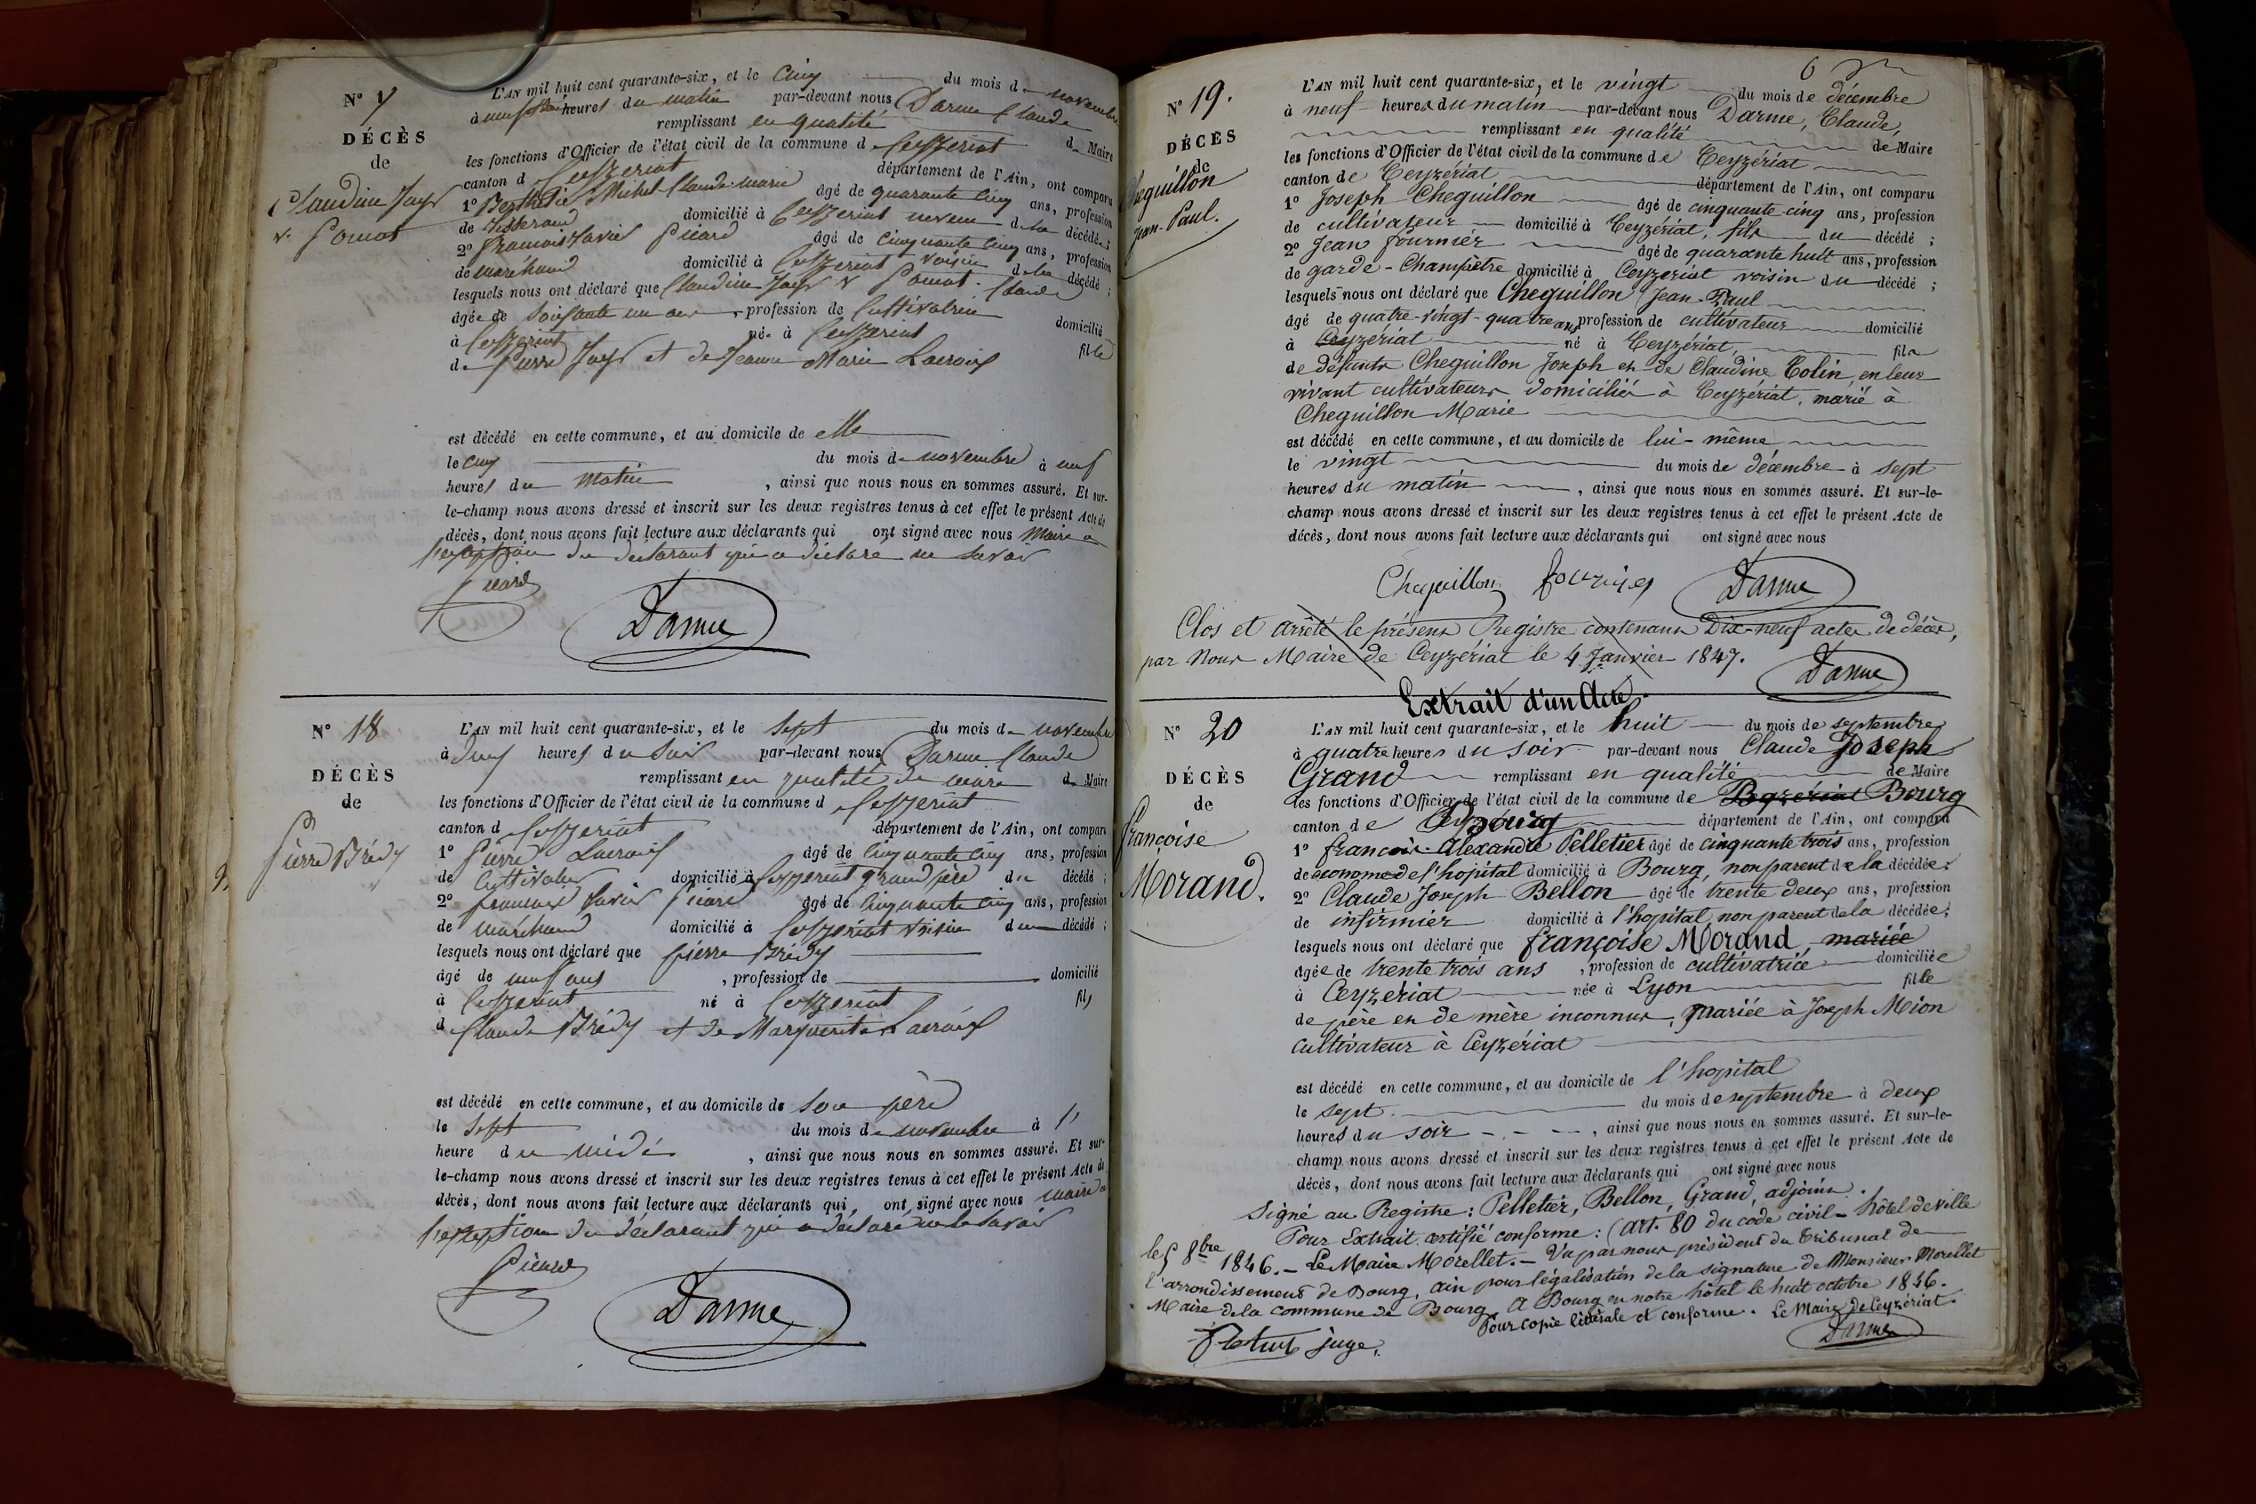 N° 17
DÉCÈS
de
Claudine Jayr
v. Pomat
L'AN mil huit cent quarante-six, et le cinq du mois de novembre
à neuf heures du matin par-devant nous Darme Claude
remplissant en qualité de Maire
les fonctions d'Officier de l'état civil de la commune d Ceyzeriat
canton d Ceyzeriat département de l'Ain, ont comparu
1° Berthelié Michel Claude marie âgé de quarante cinq ans, profession
de tisserand domicilié à Ceyzeriat neveu de la décédée;
2° francois Xavier Picard âgé de cinquante cinq ans, profession
de maréchand domicilié à Ceyzeriat voisin de la décédé;
lesquels nous ont déclaré que Claudine Jayr v Pomat Claude
âgée de soixante un ans, profession de Cultivatrice domicilié
à Ceyzeriat née à Ceyzeriat fille
de Pierre Jayr et de Jeanne Marie Lacroix
est décédé en cette commune, et au domicile de elle
le cinq du mois de novembre à neuf
heures du matin, ainsi que nous nous en sommes assuré. Et sur-
le-champ nous avons dressé et inscrit sur les deux registres tenus à cet effet le présent Acte de
décès, dont nous avons fait lecture aux déclarants qui ont signé avec nous Maire a
l'exception du declarant qui a déclaré ne savoir
Picard
Darme
N° 18
DÉCÈS
de
Pierre Brédy
L'AN mil huit cent quarante-six, et le sept du mois de novembre
à deux heures du soir par-devant nous Darme Claude
remplissant en qualité de maire d Maire
les fonctions d'Officier de l'état civil de la commune d Ceyzeriat
canton d Ceyzeriat département de l'Ain, ont comparu
1° Pierre Lacroix âgé de cinquante cinq ans, profession
de Cultivateur domicilié à Ceyzeriat grand père du décédé;
2° francois Xavier Picard âgé de cinquante cinq ans, profession
de maréchand domicilié à Ceyzeriat voisin du décédé;
lesquels nous ont déclaré que pierre Brédy
âgé de neuf ans, profession de domicilié
à Ceyzeriat né à Ceyzeriat fils
d Claude Brédy et de Marguerite Lacroix
est décédé en cette commune, et au domicile de son père
le sept du mois de novembre à 1
heure du midi, ainsi que nous nous en sommes assuré. Et sur-
le-champ nous avons dressé et inscrit sur les deux registres tenus à cet effet le présent Acte de
décès, dont nous avons fait lecture aux déclarants qui ont signé avec nous maire a
l'exception du déclarant qui a déclaré ne le savoir
Picard
Darme
6
N° 19.
DÉCÈS
de
Cheguillon
Jean-Paul.
L'AN mil huit cent quarante-six, et le vingt du mois de décembre
à neuf heures du matin par-devant nous Darme, Claude,
remplissant en qualité de Maire
les fonctions d'Officier de l'état civil de la commune de Ceyzériat
canton de Ceyzériat département de l'Ain, ont comparu
1° Joseph Cheguillon âgé de cinquante-cinq ans, profession
de cultivateur domicilié à Ceyzériat, fils du décédé;
2° Jean fournier âgé de quarante huit ans, profession
de garde-champêtre domicilié à Ceyzeriat voisin du décédé;
lesquels nous ont déclaré que Cheguillon Jean-Paul
âgé de quatre-vingt-quatre ans profession de cultivateur domicilié
à Ceyzériat né à Ceyzériat, fils
de défunts Cheguillon Joseph et de Claudine Colin, en leur
vivant cultivateurs domiciliés à Ceyzériat, marié à
Cheguillon Marie
est décédé en cette commune, et au domicile de lui-même
le vingt du mois de décembre à sept
heures du matin, ainsi que nous nous en sommes assuré. Et sur-le-
champ nous avons dressé et inscrit sur les deux registres tenus à cet effet le présent Acte de
décès, dont nous avons fait lecture aux déclarants qui ont signé avec nous
Cheguillon fournier Darme
Clos et arrêté le présent Registre contenant Dix-neuf actes de décès,
par Nous Maire de Ceyzériat le 4 Janvier 1847. Darme
Extrait d'un Acte.
N° 20
DÉCÈS
de
Françoise
Morand.
L'AN mil huit cent quarante-six, et le huit du mois de septembre
à quatre heures du soir par-devant nous Claude Joseph
Grand remplissant en qualité de Maire
les fonctions d'Officier de l'état civil de la commune de Bourg
canton de Bourg département de l'Ain, ont comparu
1° françois-Alexandre Pelletier âgé de cinquante trois ans, profession
de économe de l'hôpital domicilié à Bourg, non parent de la décédée;
2° Claude Joseph Bellon âgé de trente deux ans, profession
de infirmier domicilié à l'hôpital non parent de la décédée;
lesquels nous ont déclaré que françoise Morand, mariée
âgée de trente trois ans, profession de cultivatrice domiciliée
à Ceyzériat née à Lyon fille
de père et de mère inconnus, mariée à Joseph Mion
cultivateur à Ceyzériat
est décédé en cette commune, et au domicile de l'hopital
le sept du mois de septembre à deux
heures du soir, ainsi que nous nous en sommes assuré. Et sur-le-
champ nous avons dressé et inscrit sur les deux registres tenus à cet effet le présent Acte de
décès, dont nous avons fait lecture aux déclarants qui ont signé avec nous
Signé au Registre: Pelletier, Bellon, Grand, adjoint.
Pour Extrait certifié conforme: (art. 80 du code civil - hôtel de ville
le 5 8bre 1846. - Le Maire Morellet. - Vu par nous président du tribunal de
l'arrondissement de Bourg, ain pour légalisation de la signature de Monsieur Morellet
Maire de la commune de Bourg, A Bourg en notre hôtel le huit octobre 1846.
Pour copie littérale et conforme. Le Maire de Ceyzériat.
juge. Darme